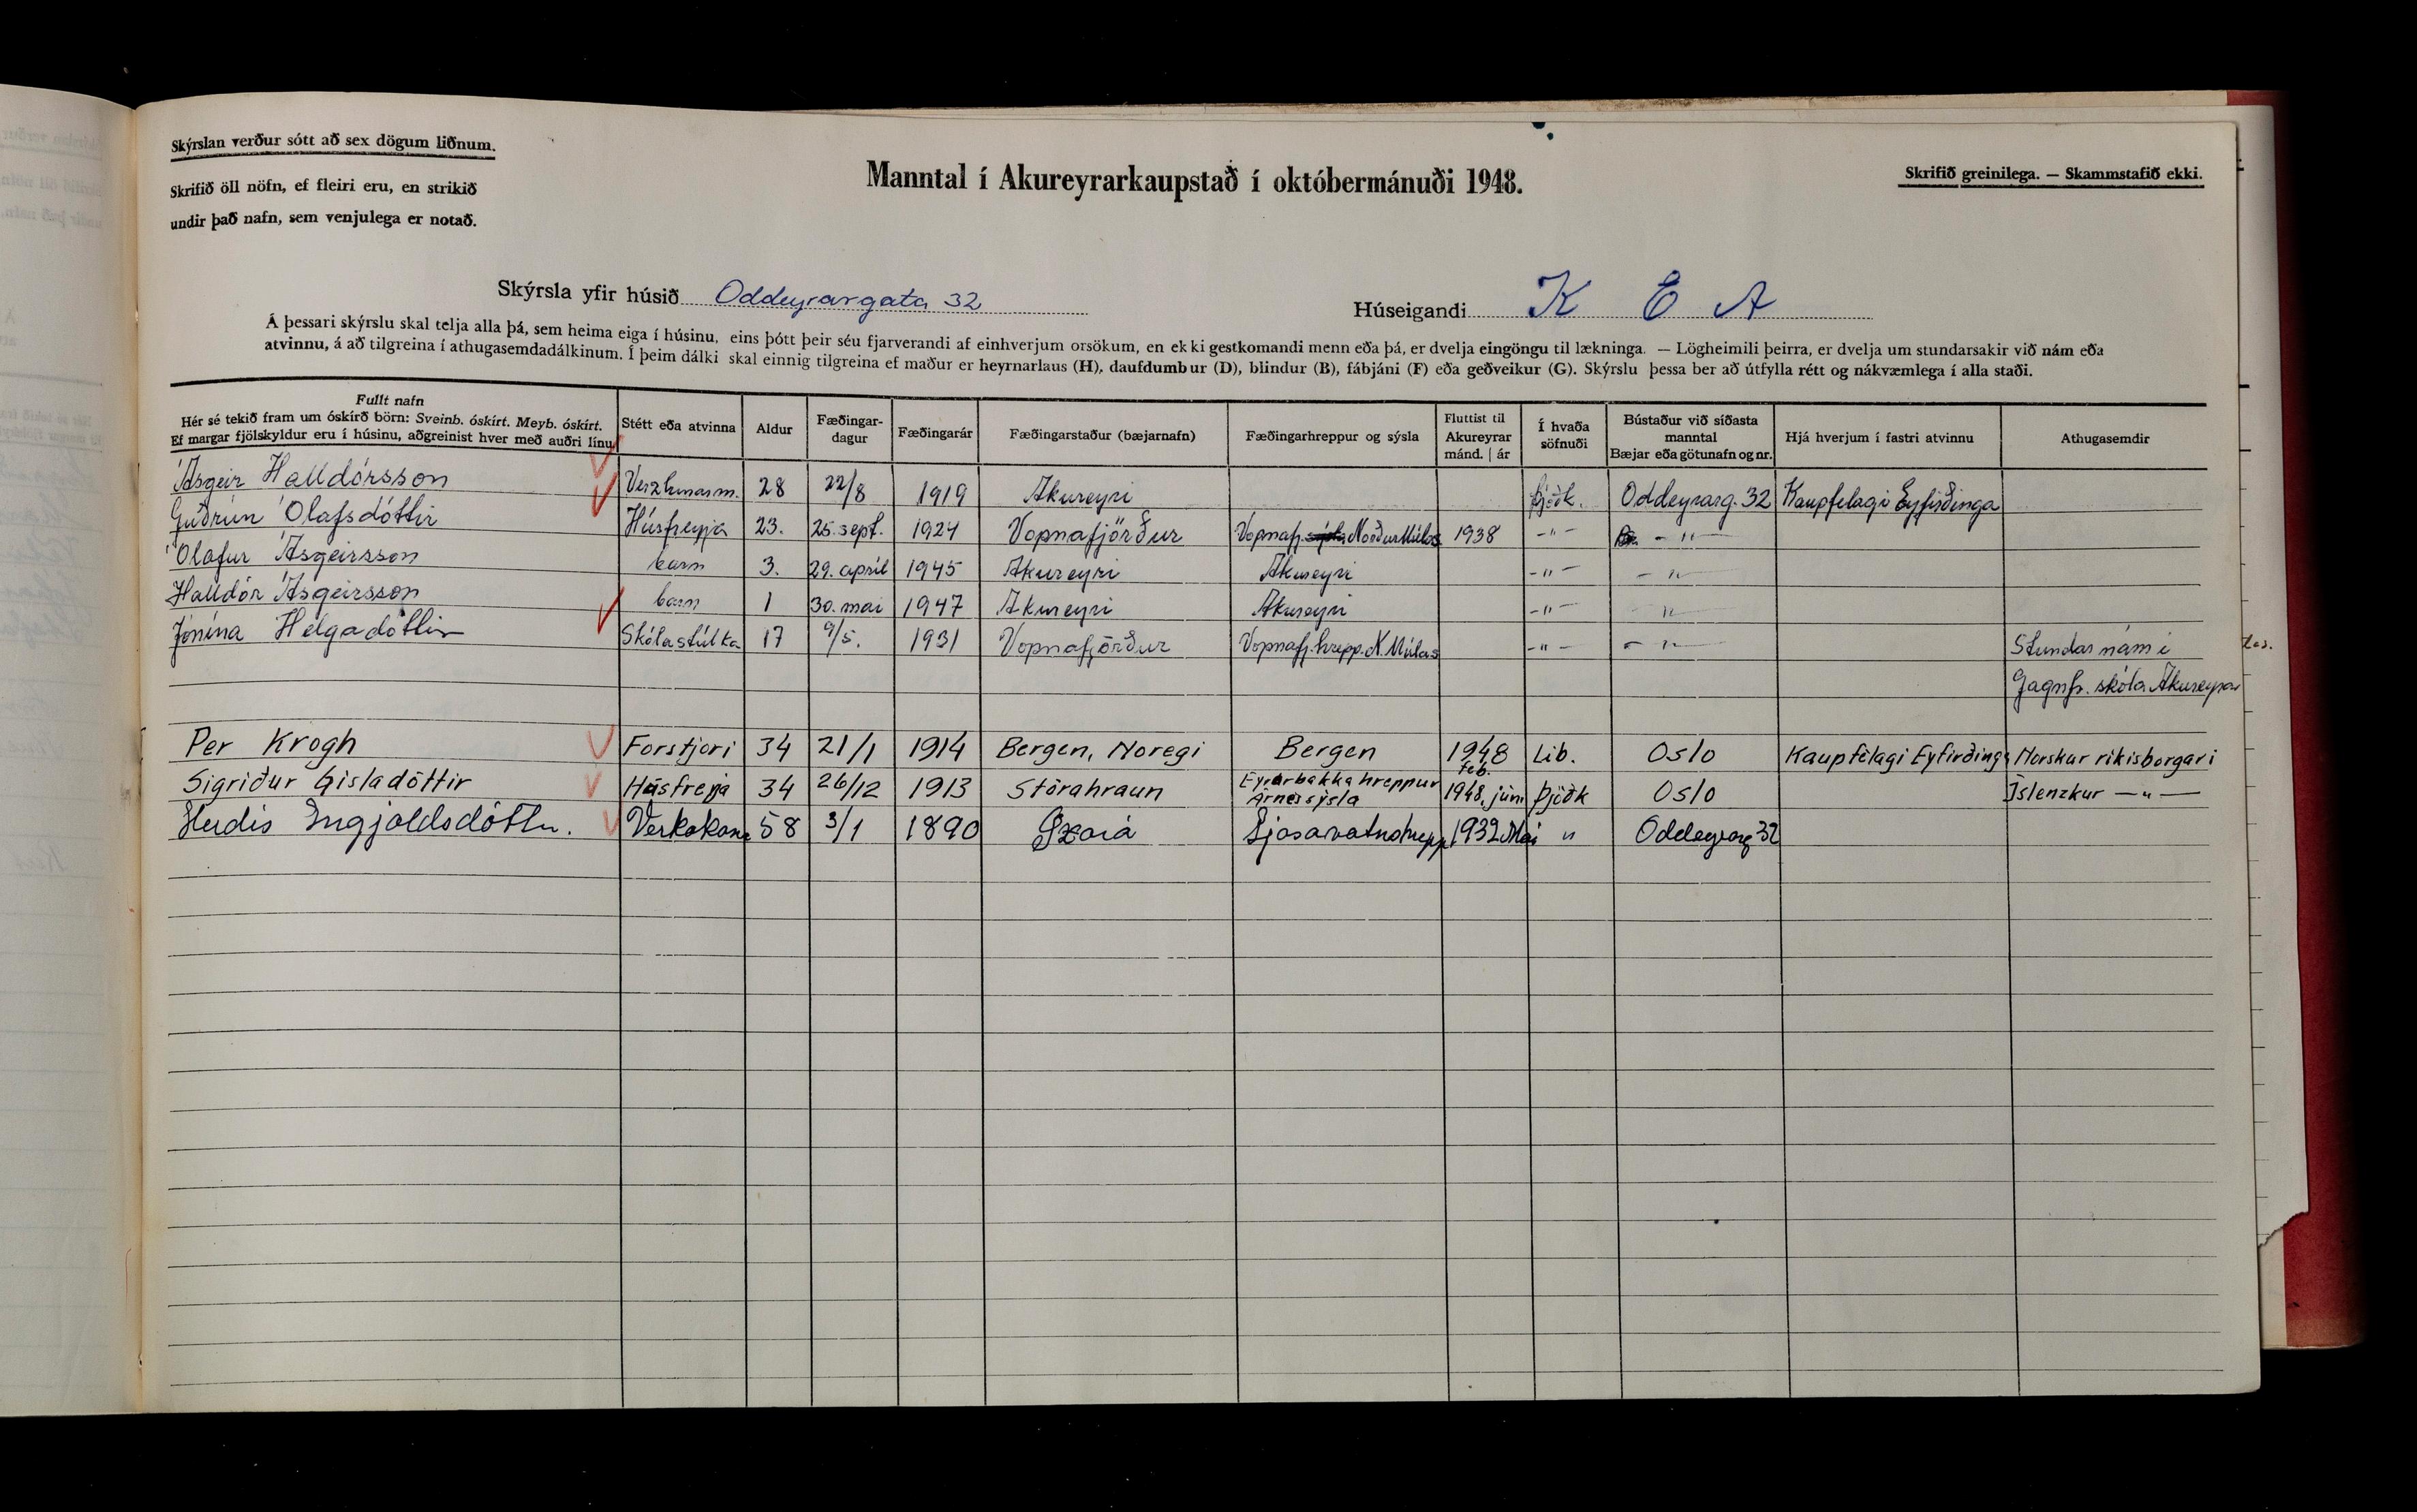 Skýrslan verður sótt að sex dögum liðnum.
Skrifið öll nöfn, ef fleiri eru, en strikið
undir það nafn, sem venjulega er notað.
Manntal í Akureyrarkaupstað í októbermánuði 1948.
Skrifið greinilega. — Skammstafið ekki.
Skýrsla yfir húsið Oddeyrargata 32
Húseigandi K E A
Á þessari skýrslu skal telja alla þá, sem heima eiga í húsinu, eins þótt þeir séu fjarverandi af einhverjum orsökum, en ekki gestkomandi menn eða þá, er dvelja eingöngu til lækninga. — Lögheimili þeirra, er dvelja um stundarsakir við nám eða
atvinnu, á að tilgreina í athugasemdadálkinum. Í þeim dálki skal einnig tilgreina ef maður er heyrnarlaus (H), daufdumbur (D), blindur (B), fábjáni (F) eða geðveikur (G). Skýrslu þessa ber að útfylla rétt og nákvæmlega í alla staði.
Fullt nafn
Hér sé tekið fram um óskírð börn: Sveinb. óskírt. Meyb. óskírt.
Ef margar fjölskyldur eru í húsinu, aðgreinist hver með auðri línu.
Stétt eða atvinna
Aldur
Fæðingar-
dagur
Fæðingarár
Fæðingarstaður (bæjarnafn)
Fæðingarhreppur og sýsla
Fluttist til
Akureyrar
mánd. | ár
Í hvaða
söfnuði
Bústaður við síðasta
manntal
Bæjar eða götunafn og nr.
Hjá hverjum í fastri atvinnu
Athugasemdir
Ásgeir Halldórsson Verzlunarm. 28 22/8 1919 Akureyri þjóðk. Oddeyrarg. 32 Kaupfelagi Eyfirðinga
Guðrún Ólafsdóttir Húsfreyja 23. 25. sept. 1924 Vopnafjörður Vopnafj. Norður Múlas 1938 -"- -"-
Ólafur Ásgeirsson barn 3. 29. apríl 1945 Akureyri Akureyri -"- -"-
Halldór Ásgeirsson barn 1 30. mai 1947 Akureyri Akureyri -"- -"-
Jónína Helgadóttir Skólastúlka 17 9/5. 1931 Vopnafjörður Vopnafj. hrepp. N. Múlas -"- -"- Stundar nám í
Gagnfr. skóla Akureyrar
Per Krogh Forstjori 34 21/1 1914 Bergen, Noregi Bergen 1948 feb. Lib. Oslo Kaupfélagi Eyfirðinga Norskur rikisborgari
Sigriður Gisladóttir Húsfreyja 34 26/12 1913 Stórahraun Eyrarbakka hreppur Árnessýsla 1948. júni þjóðk Oslo Íslenzkur —"—
Herdís Ingjaldsdóttir. Verkakona 58 3/1 1890 Ljosavatnshrepp 1932 Mai " Oddeyrarg 32